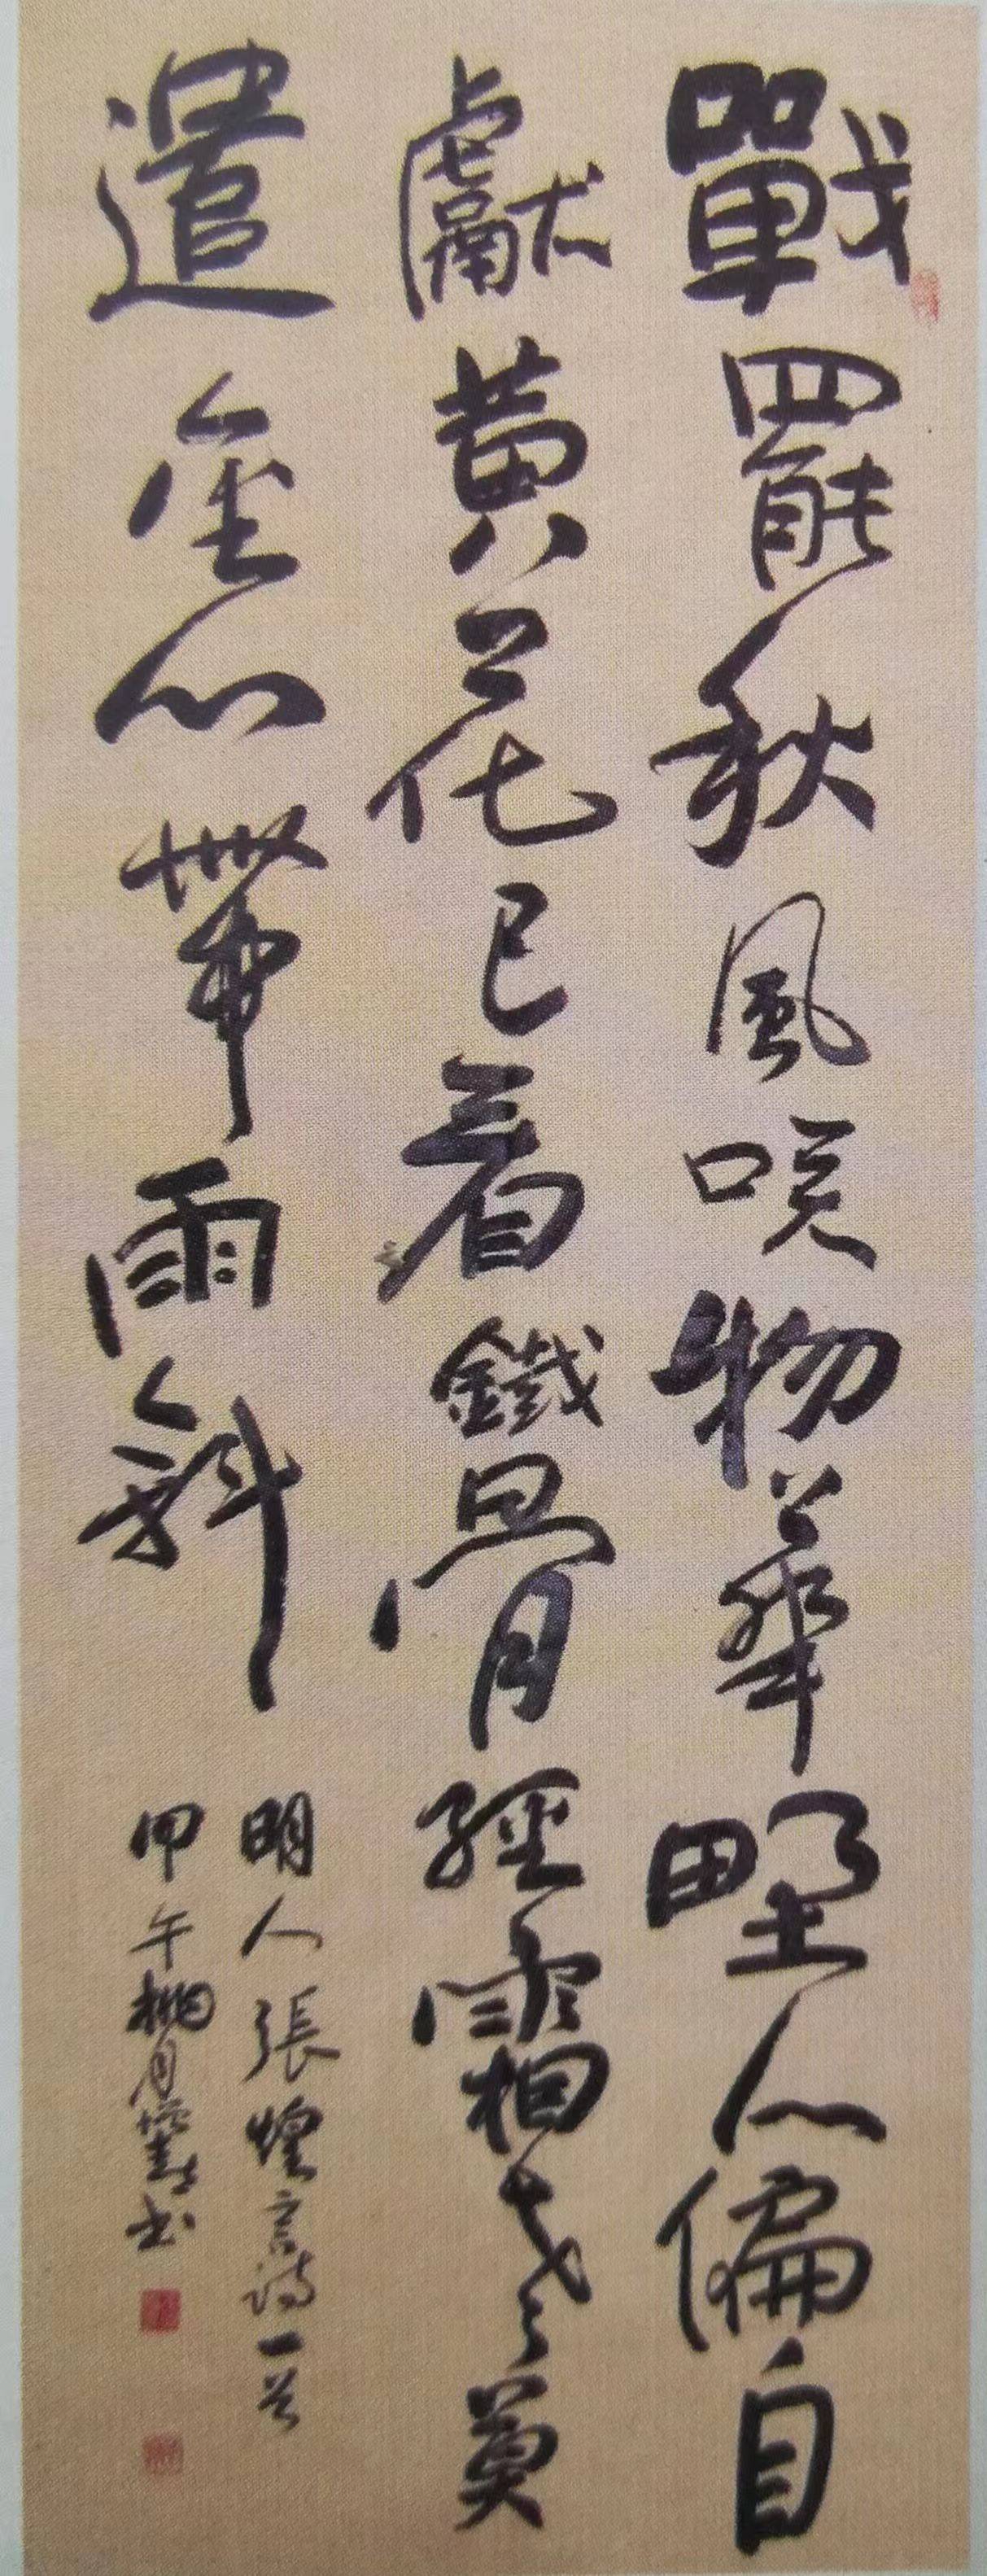 戰罷秋風笑物華野人偏自
獻黃花已看鐵骨經霜老莫
遣金心帶雨斜
明人張煌言詩一首
甲午桃月書